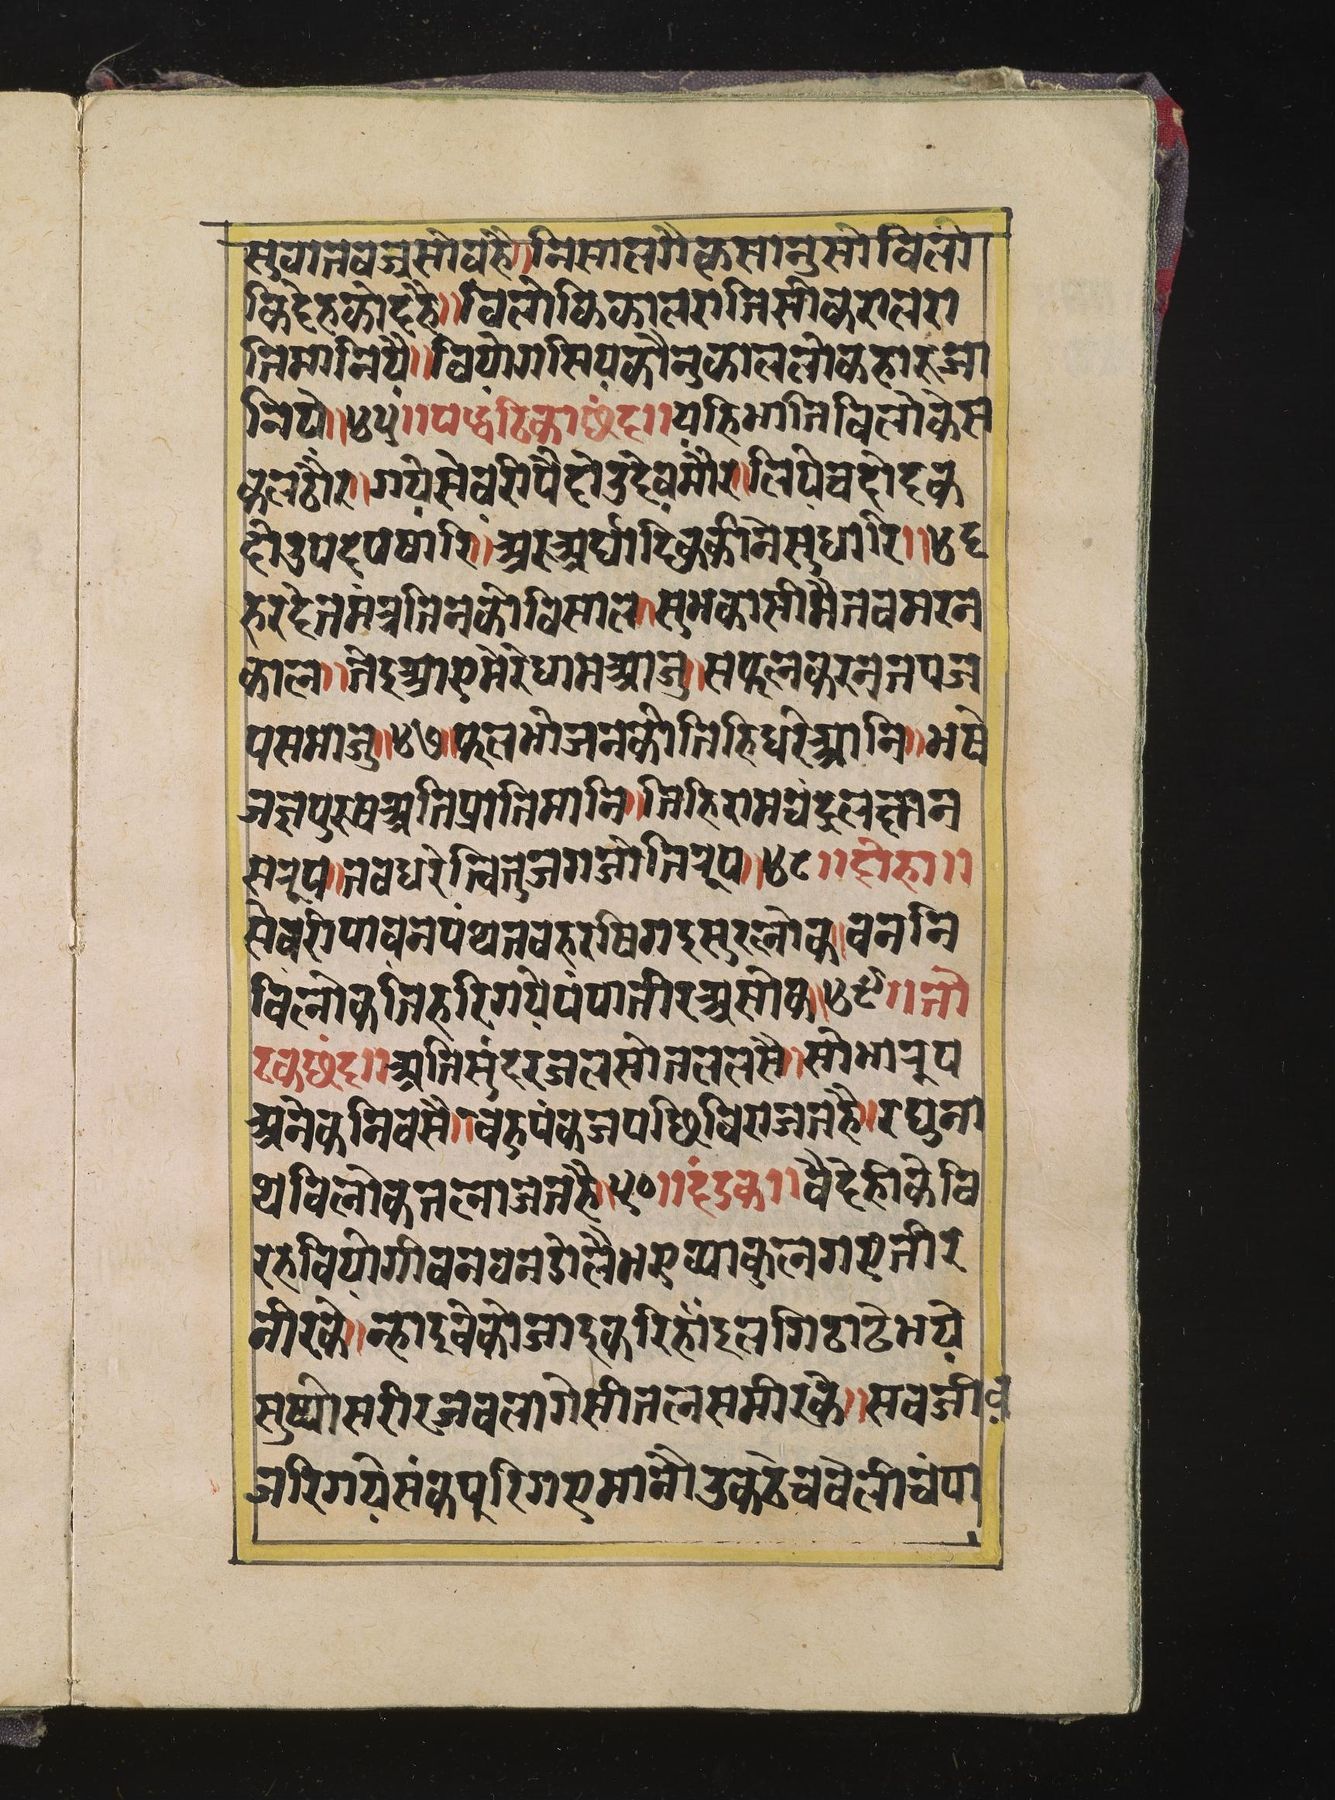 सुवातवज्रसोबहै॥निसालगैकृसानुसोविलो
किदेहकोदहै॥विलोकिकालरातिसीकरालरा
तिमानिये॥वियोगसियकौनुकाललोकहारुजा
निये॥४५॥पद्धटिकाछंद॥यहिभातिविलोकेस
कलठौर॥गयेसेवरीपैदोउदेवमौर॥लियेचदोदक
दोउपदपषारि॥अरुअर्घादिककीनेसुधारि॥४६
हरदेतमंत्रजिनकोविसाल॥सुभकासीमैतवमरन
काल॥तेइआएमेरेधामआजु॥सफलकरनजपज
पसमाजु॥४७॥फलभोजनकोतिहिधरेआनि॥भषे
जज्ञपुरुषअतिप्रीतिमानि॥तिहिरामचंदुलछन
सरूप॥तवधरेचितुजगजोतिरूप॥४८॥दोहा॥
सेवरीपावनपंथतवहरषिगइसुरलोक॥वननि
विलोकतिहरिगयेपंपातीरअसोक॥४९॥तो
टकछंद॥अतिसुंदरजलसोतललसै॥सोभारूप
अनेकनिवसै॥वहुपंकजपछिविराजतहै॥रघुना
थविलोकतलाजतहै॥५०॥दंडक॥वैदेहीकेवि
रहवियोगीवनवनडोलैभएव्याकुलगएतीर
नीरके॥न्हाइवेकोजाइकरिहौंइलगिठाढेभये
सुष्योसरीरजवलागेसीतलसमीरके॥सवजीव
जरिगयेसंकपूरिगएमानौउकठेचवेलीचंपा